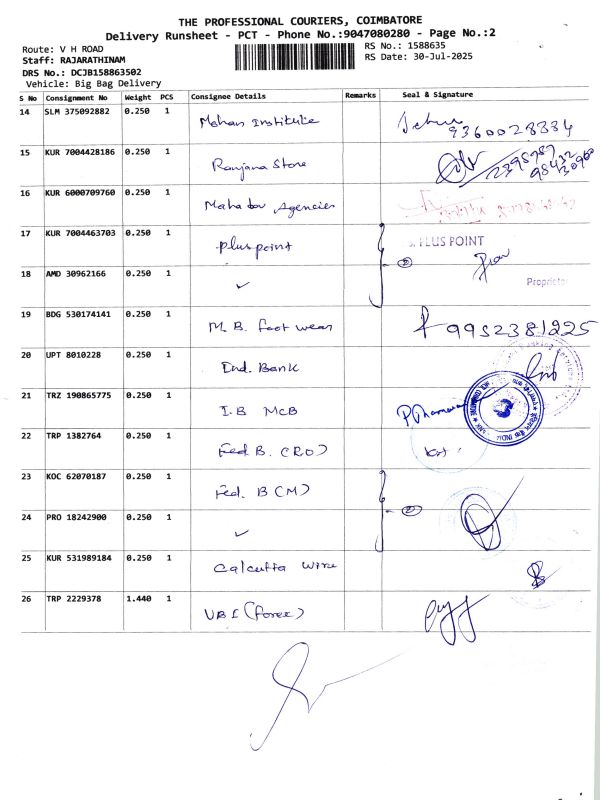 THE PROFESSIONAL COURIERS, COIMBATORE
Delivery Runsheet - PCT - Phone No.:9047080280 - Page No.:2
Route: V H ROAD
RS No.: 1588635
Staff: RAJARATHINAM
RS Date: 30-Jul-2025
DRS No.: DCJB158863502
Vehicle: Big Bag Delivery
S No Consignment No Weight PCS Consignee Details Remarks Seal & Signature
14 SLM 375092882 0.250 1 Mohan Institute 9360028334
15 KUR 7004428186 0.250 1 Ranjana Store
16 KUR 6000709760 0.250 1 Agencies
17 KUR 7004463703 0.250 1 Pluspoint PLUS POINT
18 AMD 30962166 0.250 1 ✓ Proprietor
19 BDG 530174141 0.250 1 M.B. Foot wear 9952381225
20 UPT 8010228 0.250 1 Ind. Bank
21 TRZ 190865775 0.250 1 I.B MCB
22 TRP 1382764 0.250 1 Fed B. (RO)
23 KOC 62070187 0.250 1 Fed. B (M)
24 PRO 18242900 0.250 1 ✓
25 KUR 531989184 0.250 1 Calcutta Wire
26 TRP 2229378 1.440 1 UBI (Forex)